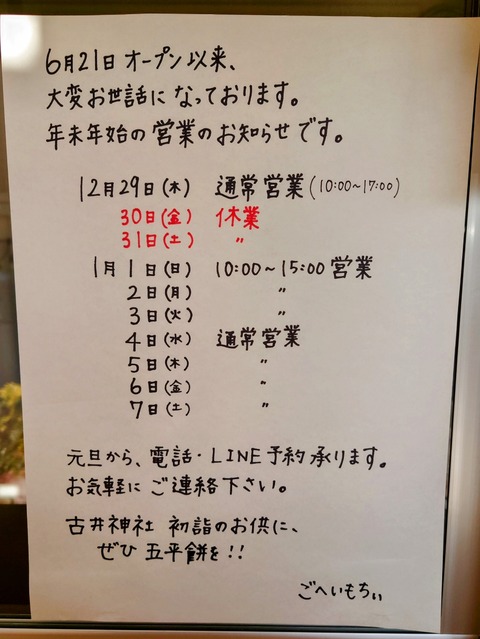 6月21日 オープン以来、
大変お世話になっております。
年末年始の営業のお知らせです。
12月29日(木) 通常営業(10:00~17:00)
30日(金) 休業
31日(土) 〃
1月1日(日) 10:00~15:00 営業
2日(月) 〃
3日(火) 〃
4日(水) 通常営業
5日(木) 〃
6日(金) 〃
7日(土) 〃
元旦から、電話・LINE予約承ります。
お気軽にご連絡下さい。
古井神社 初詣のお供に、
ぜひ 五平餅を!!
ごへいもちぃ